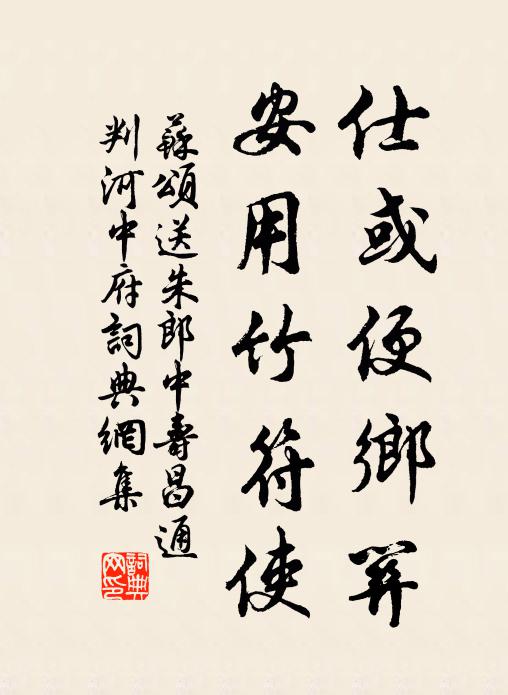 仕或便鄉
安用竹符使
蘇頌送朱郎中壽昌通
判河中府詞典網集
詞典
网印